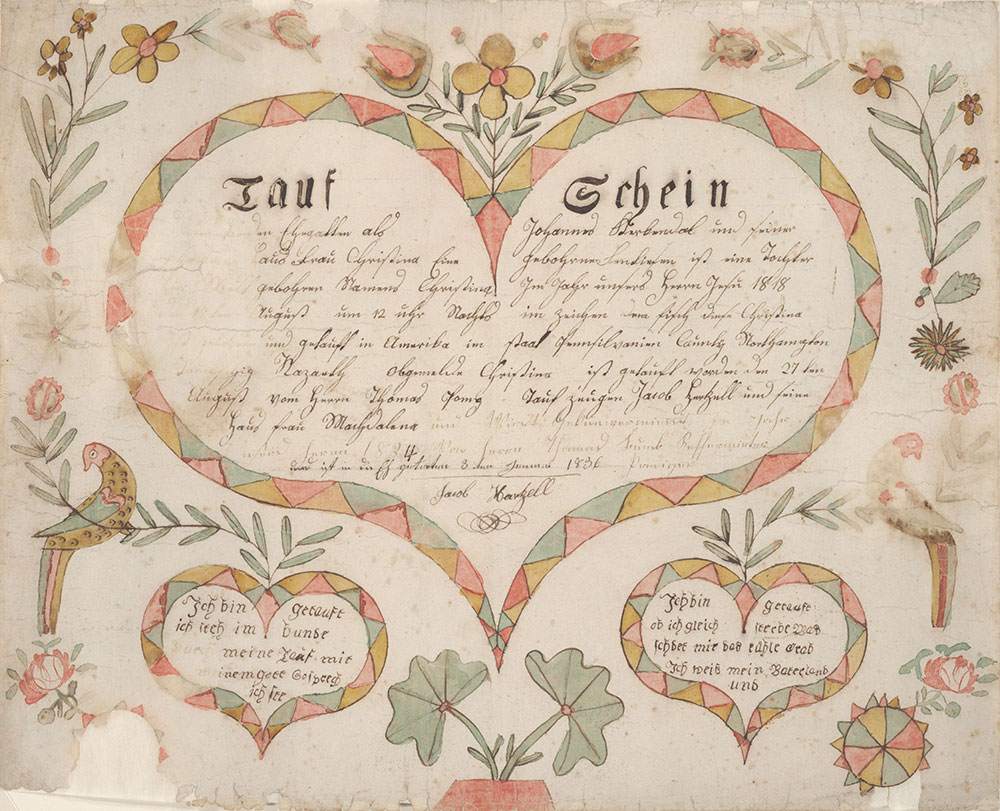 Tauf Schein
den Ehegatten als Johannes Kerkendal und seiner
Haus Frau Christina Eine gebohrne ist eine Tochter
gebohren Namens Christina Im Jahr unsers Herrn Jesu 1818
August um 12 uhr Nachts im zeichen dem fisch diese Christina
und getauft in Amerika im staat Pennsilvanien County Northampton
Nazareth obgemelde Christina ist getauft worden den 27 ten
August vom Herrn Thomas Pomp Tauf zeugen Jacob Hertzell und seine
Haus Frau Machdalena und
Herrn 4 Herrn Thomas
ist in die gebeten 3 den 1836
Jacob Hartzell
Ich bin getauft
ich steh im bunde
meine Tauf mit
meinem Gott
ich
Ich bin getauft
ob ich gleich sterbe Was
schdet mir das kühle Grab
Ich weis mein Vatterland
und